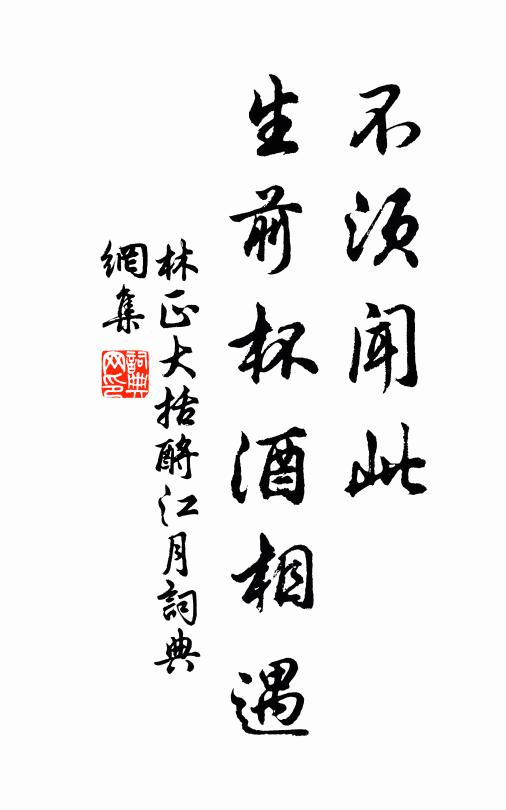 不須聞此
生前杯酒相遇
林正大括酹江月詞典
網集
詞典
网印